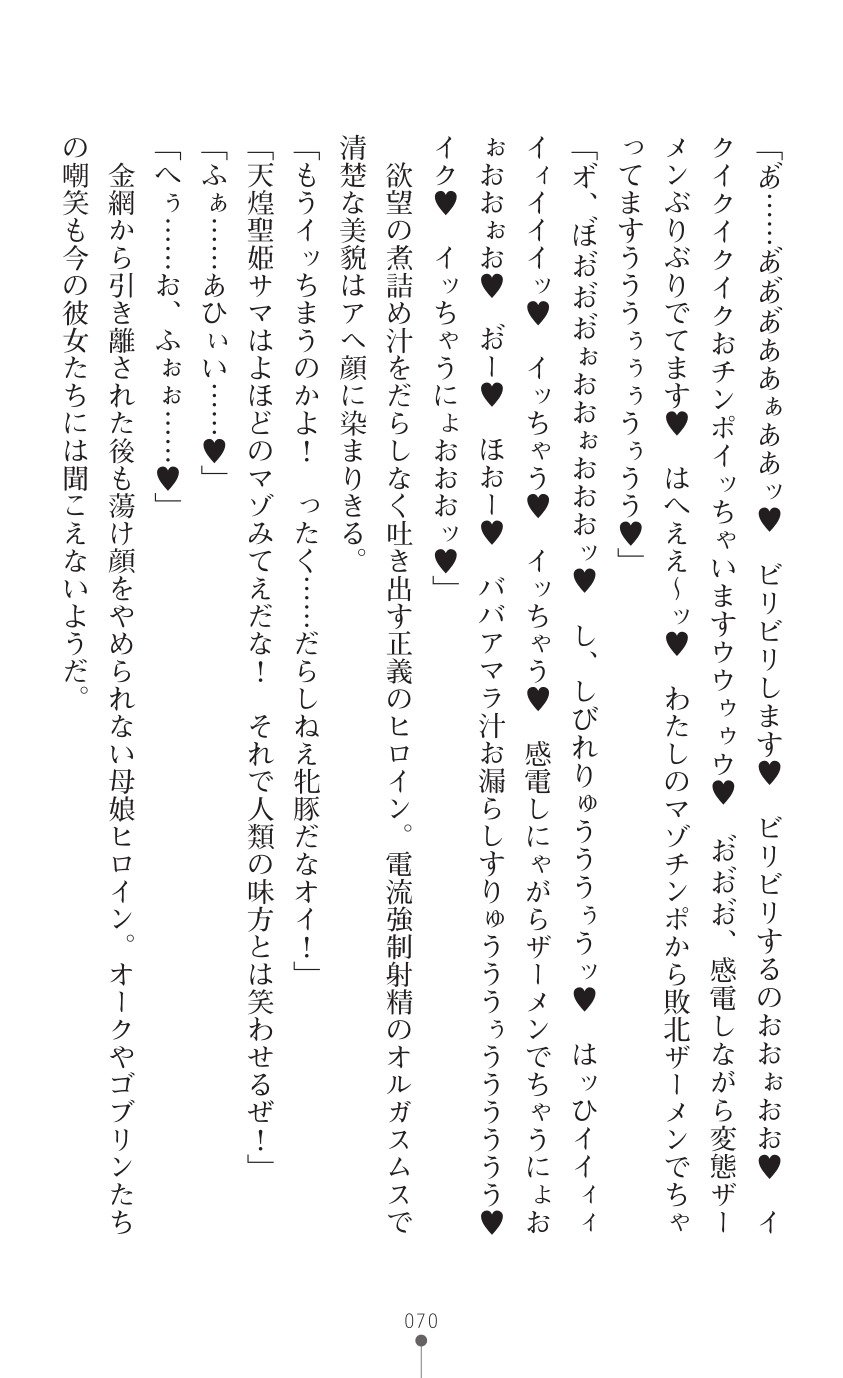 「あ゛……あ゛あ゛あ゛ああぁああッ♥　ビリビリします♥　ビリビリするのおおぉおお♥　イ
クイクイクイクおチンポイッちゃいますウウゥゥウ♥　お゛お゛お゛、感電しながら変態ザー
メンぶりぶりでてます♥　はへええ～ッ♥　わたしのマゾチンポから敗北ザーメンでちゃ
ってますうううぅぅぅうぅうう♥」
「オ゛、ぼお゛お゛お゛ぉおおぉおおおッ♥　し、しびれりゅうううぅうッ♥　はッひイイィィ
イィイイイッ♥　イッちゃう♥　イッちゃう♥　感電しにゃがらザーメンでちゃうにょお
ぉおおぉお♥　お゛ー♥　ほおー♥　ババアマラ汁お漏らしすりゅうううぅうううううう♥
イク♥　イッちゃうにょおおおッ♥」
　欲望の煮詰め汁をだらしなく吐き出す正義のヒロイン。電流強制射精のオルガスムスで
清楚な美貌はアヘ顔に染まりきる。
「もうイッちまうのかよ！　ったく……だらしねえ牝豚だなオイ！」
「天煌聖姫サマはよほどのマゾみてえだな！　それで人類の味方とは笑わせるぜ！」
「ふぁ……あひぃい……♥」
「へぅ……お、ふぉぉ……♥」
　金網から引き離された後も蕩け顔をやめられない母娘ヒロイン。オークやゴブリンたち
の嘲笑も今の彼女たちには聞こえないようだ。
070